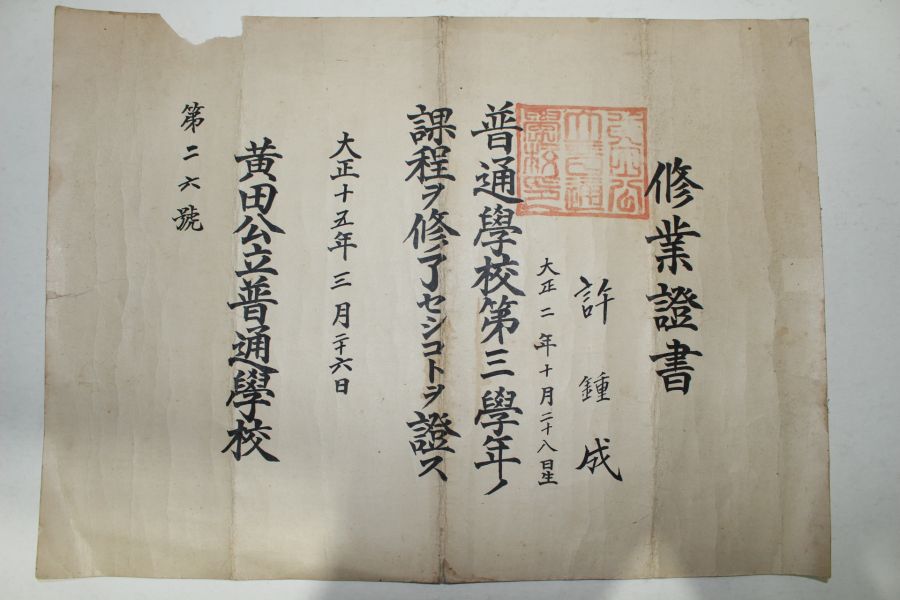 修業證書
許鍾成
大正二年十月二十八日生
普通學校第三學年ノ
課程ヲ修了セシコトヲ證ス
大正十五年三月二十六日
黄田公立普通學校
第二六號